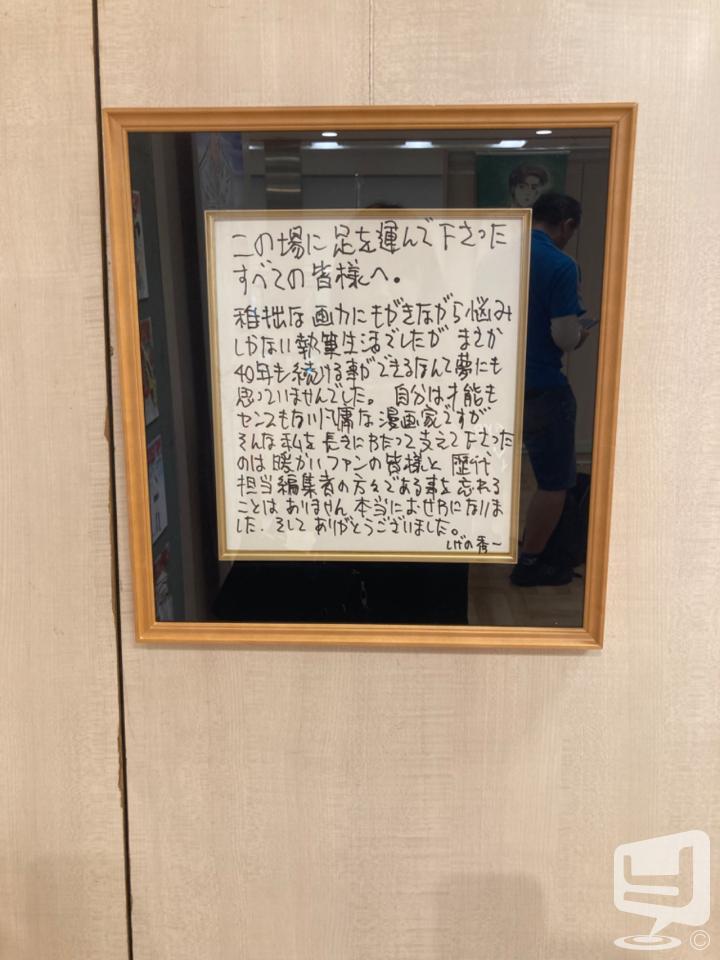 この場に足を運んで下さった
すべての皆様へ。
稚拙な画力にもがきながら悩み
しかない執筆生活でしたが まさか
40年も続ける事ができるなんて夢にも
思っていませんでした。自分は才能も
センスもない凡庸な漫画家ですが
そんな私を長きにわたって支えて下さった
のは暖かいファンの皆様と 歴代
担当編集者の方々である事を忘れる
ことはありません 本当におせわになりま
した. そして ありがとうございました。
しげの秀一
©